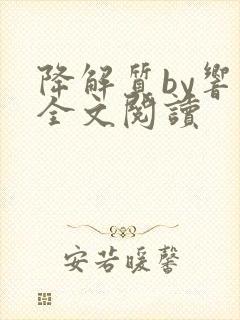 降解質by響
全文閱讀
安若暖馨